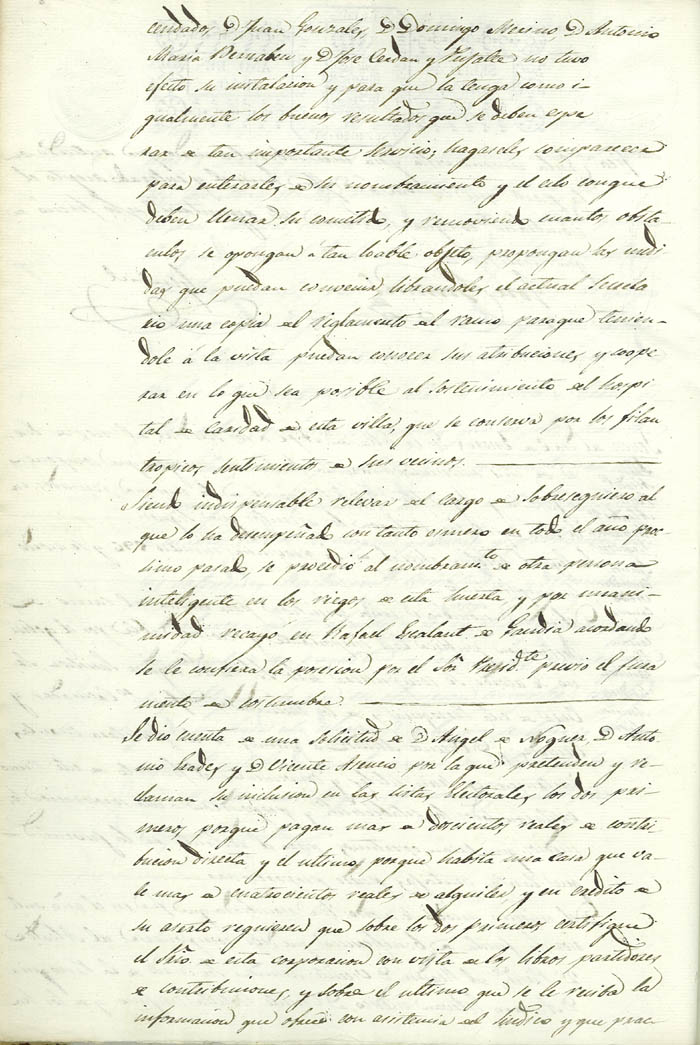 cendados, D. Juan Gonzales, D. Domingo Merino, D. Antonio
Maria Bernabeu y D. Jose Cerdan y no tuvo
efecto su instalacion y para que la tenga como i-
gualmente los buenos resultados que se deben espe
rar de tan importante servicio; hagaseles comparecer
para enterarles de su nombramiento y el celo con que
deben llenar su cometido, y removiendo cuantos obsta-
culos se opongan á tan loable objeto, propongan las medi
das que puedan convenir, librandoles el actual Secreta
rio una copia del reglamento del ramo para que tenien-
dole á la vista puedan conocer sus atribuciones, y coope
rar en lo que sea posible al sostenimiento del hospi
tal de Caridad de esta villa, que se conserva por los filan
tropicos sentimientos de sus vecinos.
Siendo indispensable relevar del cargo de Sobresequiero al
que lo ha desempeñado con tanto esmero en todo el año proc-
simo pasado, se procedió al nombramto de otra persona
inteligente en los riegos de esta huerta, y por unani-
midad recayó en Rafael de Gandia acordando
se le confiera la posesion por el Sor. Presidte previo el jura
mento de costumbre.
Se dió cuenta de una solicitud de D. Angel de Noguer, D. Anto
nio y D. Vicente Asencio por la que pretenden y re-
claman su inclusion en las listas electorales, los dos pri-
meros porque pagan mas de doscientos reales de contri
bucion directa y el ultimo, porque habita una casa que va-
le mas de cuatrocientos reales de alquiler, y en credito de
su aserto requieren que sobre los dos primeros certifique
el Srio. de esta corporacion con vista de los libros partidores
de contribuciones, y sobre el ultimo que se le reciba la
informacion que ofrece con asistencia del Sindico y que prac-